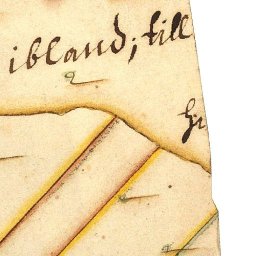 ibland; till